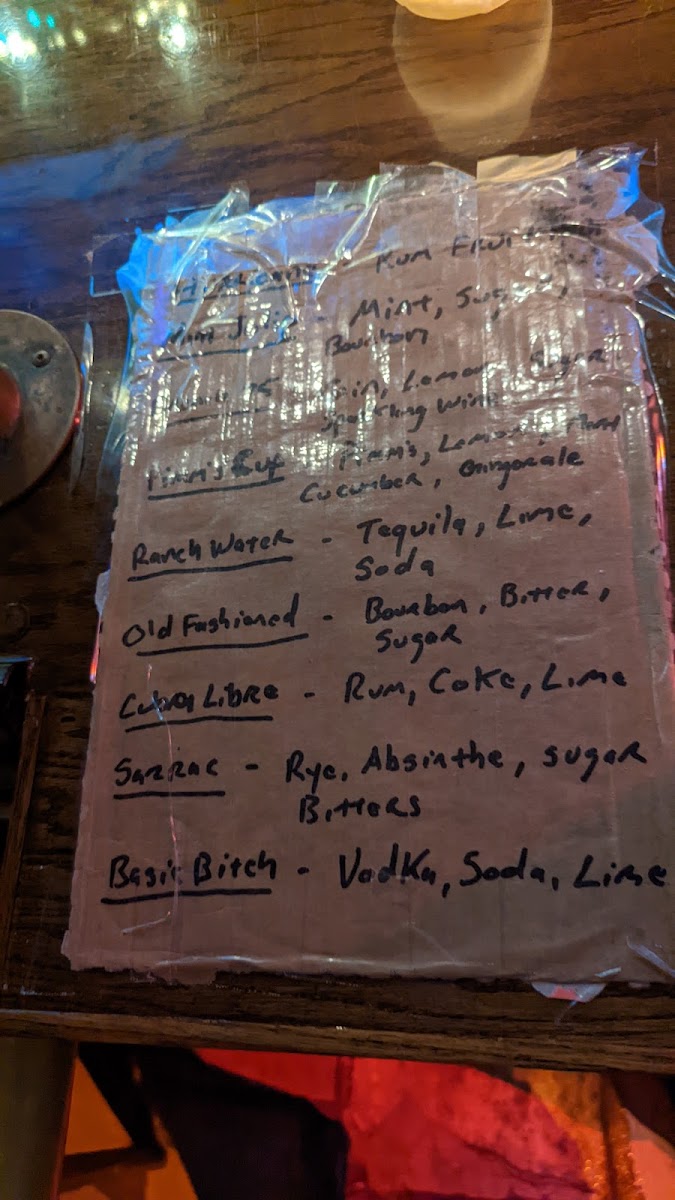 Hurricane - Rum Fruit
Mint Julip - Mint, Sugar,
Bourbon
75 - Gin, Lemon, Sugar
Sparkling Wine
Pimm's Cup - Pimm's, Lemon,
Cucumber, Gingerale
Ranch Water - Tequila, Lime,
Soda
Old Fashioned - Bourbon, Bitter,
Sugar
Cuba Libre - Rum, Coke, Lime
Sazzrac - Rye, Absinthe, sugar
Bitters
Basic Bitch - Vodka, Soda, Lime